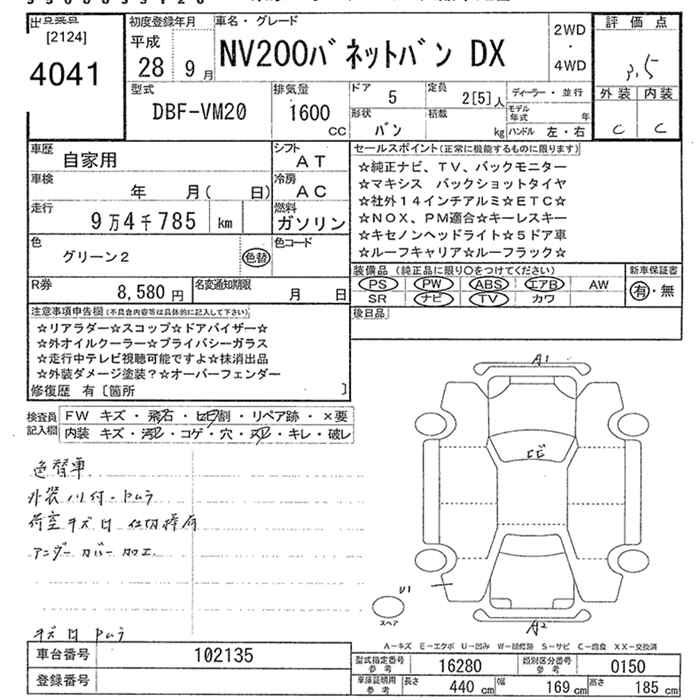 [2124]
4041
初度登録年月
平成
28年 9月
車名・グレード
NV200バネットバン DX
2WD
・
4WD
評 価 点
3.5
外 装 内 装
C C
型式
DBF-VM20
排気量
1600
CC
ドア 5
定員 2[5]人
ディーラー・並行
形状 バン
積載 kg
モデル年式 年
ハンドル 左・右
車歴
自家用
シフト
AT
車検
年 月( 日)
冷房
AC
走行
9万4千785 km
燃料
ガソリン
色
グリーン2
色替
色コード
R券
8,580 円
名変通知期限
月 日
セールスポイント(正常に機能するものに限ります)
☆純正ナビ、TV、バックモニター
☆マキシス バックショットタイヤ
☆社外14インチアルミ☆ETC☆
☆NOX、PM適合☆キーレスキー
☆キセノンヘッドライト☆5ドア車
☆ルーフキャリア☆ルーフラック☆
装備品 (純正品に限り○をつけてください)
PS PW ABS エアB AW
SR ナビ TV カワ
新車保証書
有・無
後日品
注意事項申告欄(不具合内容等は具体的に記入して下さい)
☆リアラダー☆スコップ☆ドアバイザー☆
☆外オイルクーラー☆プライバシーガラス
☆走行中テレビ視聴可能ですよ☆抹消出品
☆外装ダメージ塗装?☆オーバーフェンダー
修復歴 有〔箇所 〕
検査員記入欄
FW キズ・飛石・ヒビ割・リペア跡・×要
内装 キズ・汚レ・コゲ・穴・スレ・キレ・破レ
色替車
外装 小凹・ムラ
荷室キズ凹 仕切棒有
アンダーカバー加工
キズ凹 ムラ
A1
ヒビ
U1
スペア
A2
A-キズ E-エクボ U-凹み W-補修跡 S-サビ C-腐食 XX-交換済
車台番号 102135
登録番号
型式指定番号 参考 16280
類別区分番号 参考 0150
車庫証明用 参考 長さ 440 cm 幅 169 cm 高さ 185 cm